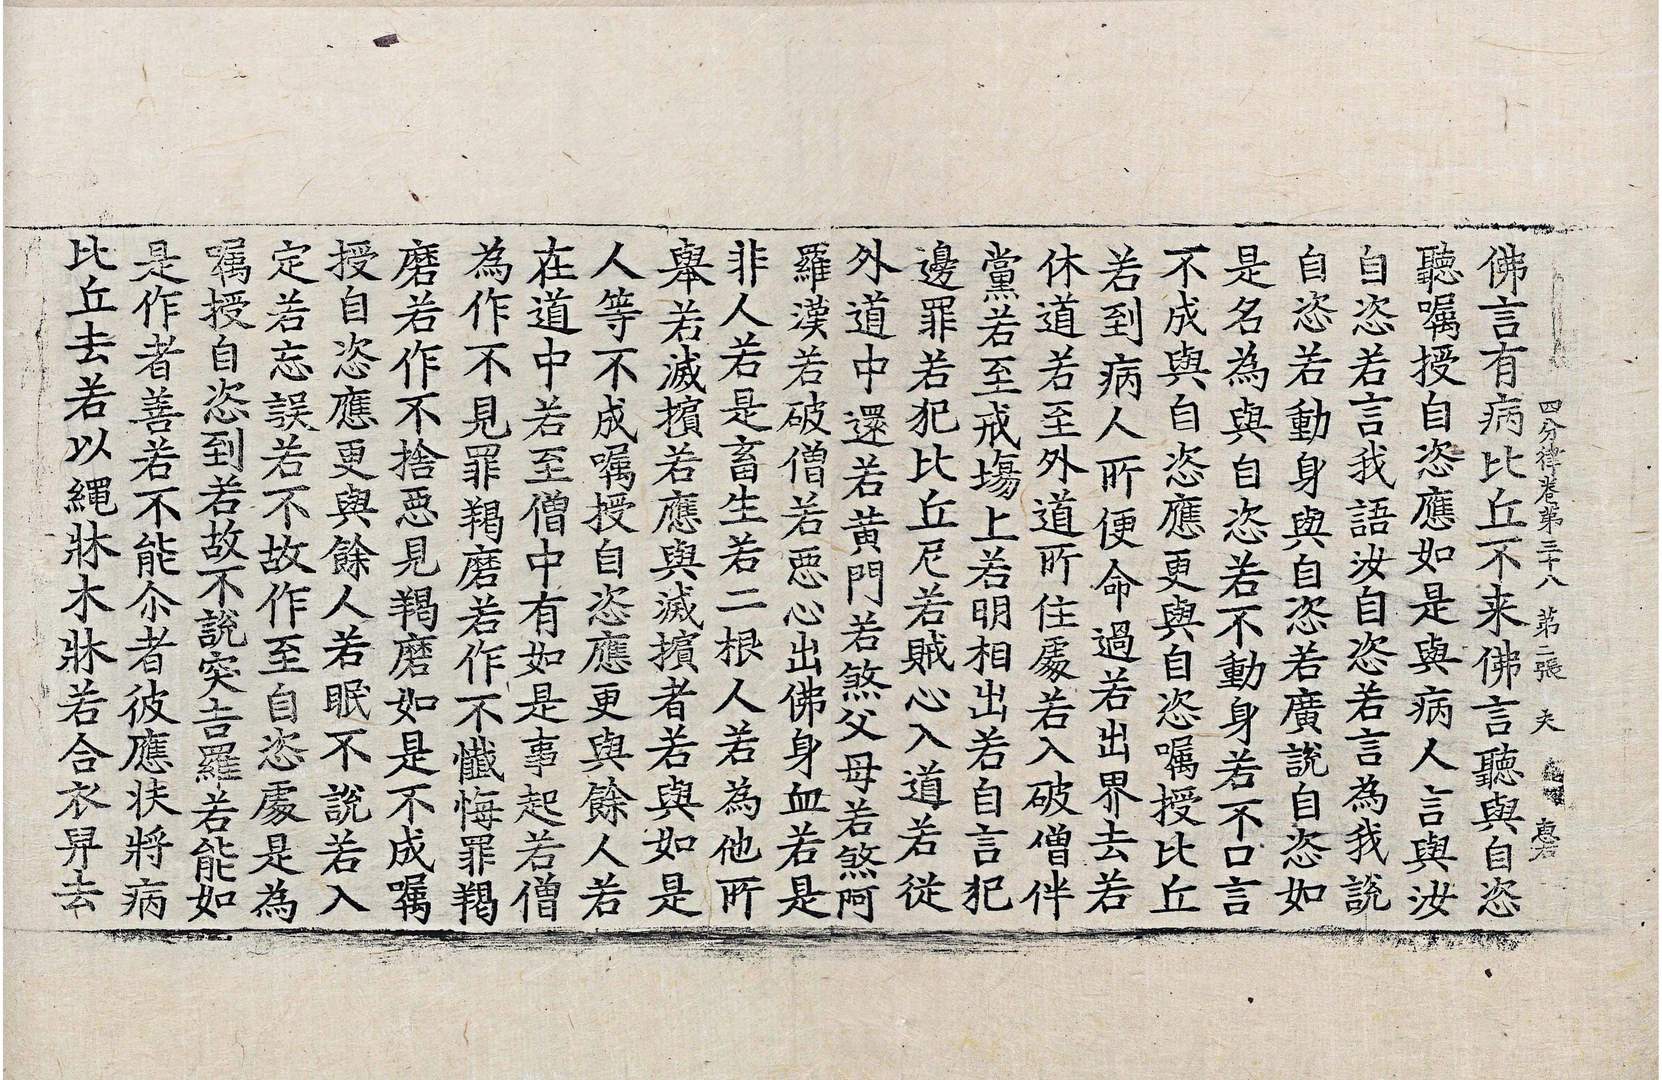 四分律卷第三十八 第二張 夫
佛言有病比丘不来佛言聽與自恣
聽嘱授自恣應如是與病人言與汝
自恣若言我語汝自恣若言為我說
自恣若動身與自恣若廣說自恣如
是名為與自恣若不動身若不口言
不成與自恣應更與自恣嘱授比丘
若到病人所便命過若出界去若
休道若至外道所住處若入破僧伴
黨若至戒場上若明相出若自言犯
邊罪若犯比丘尼若賊心入道若從
外道中還若黄門若煞父母若煞阿
羅漢若破僧若惡心出佛身血若是
非人若是畜生若二根人若為他所
舉若滅擯若應與滅擯者若與如是
人等不成嘱授自恣應更與餘人若
在道中若至僧中有如是事起若僧
為作不見罪羯磨若作不懺悔罪羯
磨若作不捨惡見羯磨如是不成嘱
授自恣應更與餘人若眠不說若入
定若忘誤若不故作至自恣處是為
嘱授自恣到若故不說突吉羅若能如
是作者善若不能尒者彼應扶將病
比丘去若以繩牀木牀若合衣舁去